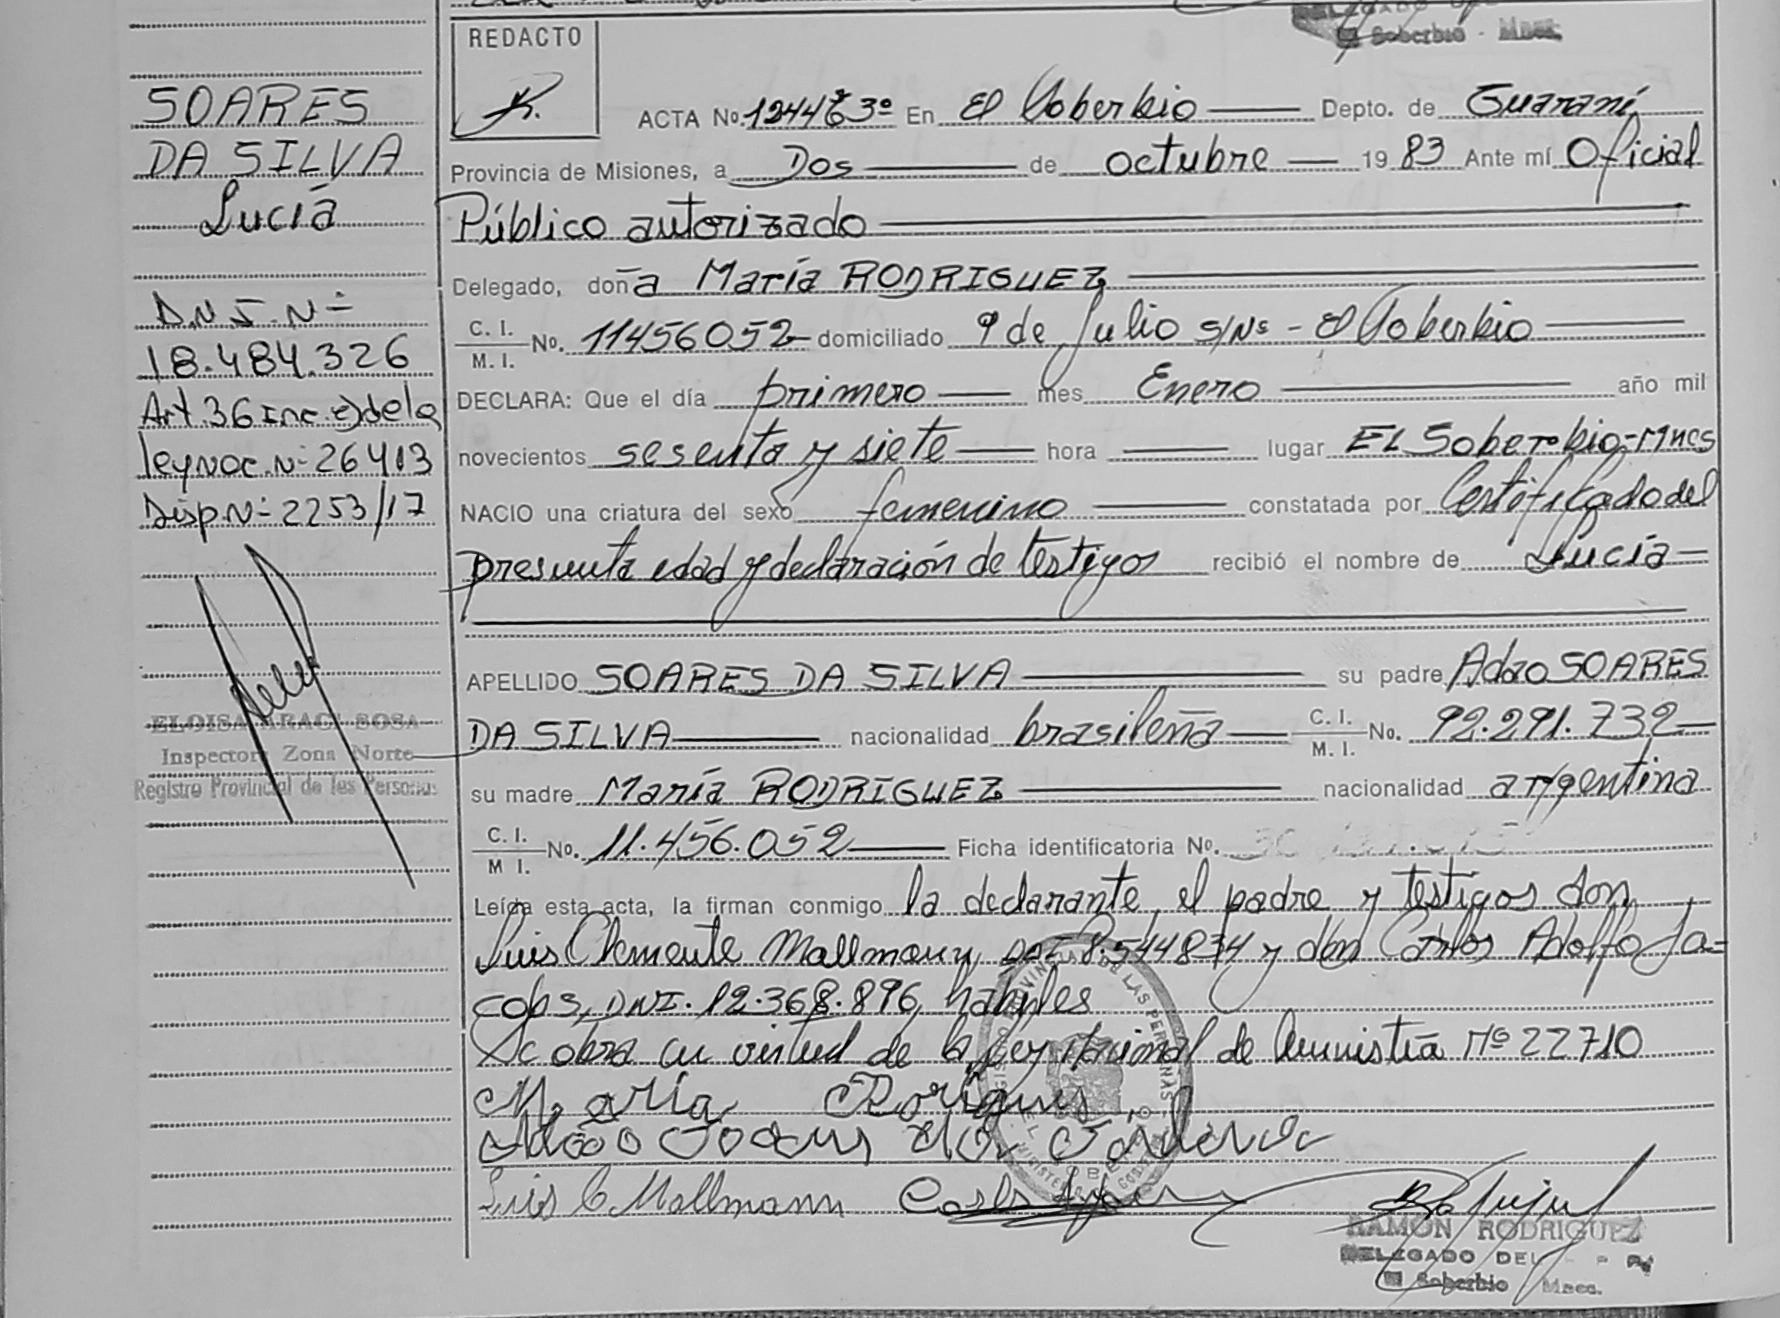 Soberbio - Mnes.
REDACTO
SOARES
DA SILVA
Lucía
D.N.I. Nº
18.484.326
Art. 36 Inc. e) de la
ley Nac. Nº 26413
Disp. Nº 2253/17
ELOISA ARACI SOSA
Inspectora Zona Norte
Registro Provincial de las Personas
ACTA No. En El Soberbio Depto. de Guaraní
Provincia de Misiones, a Dos de octubre 1983 Ante mí Oficial
Público autorizado
Delegado, doña María RODRIGUEZ
C. I.
M. I. No. 11456052 domiciliado 9 de Julio S/Nº - El Soberbio
DECLARA: Que el día primero mes Enero año mil
novecientos sesenta y siete hora lugar EL Soberbio-Mnes
NACIO una criatura del sexo femenino constatada por Certificado del
presunta edad y declaración de testigos recibió el nombre de Lucía
APELLIDO SOARES DA SILVA su padre Adão SOARES
DA SILVA nacionalidad brasileña C. I. M. I. No. 92.291.732
su madre María RODRIGUEZ nacionalidad argentina
C. I.
M I. No. 11.456.052 Ficha identificatoria No.
Leída esta acta, la firman conmigo la declarante, el padre y testigos don
Luis Clemente Mallmann, 8.544874 y don Carlos Adolfo Ja-
cobs, DNI. 12.368.896, hábiles
Se obra en virtud de la Ley Nacional de Amnistía Nº 22710
María Rodrigues
Luis C. Mallmann
RAMÓN RODRIGUEZ
DELEGADO DEL
El Soberbio Mnes.